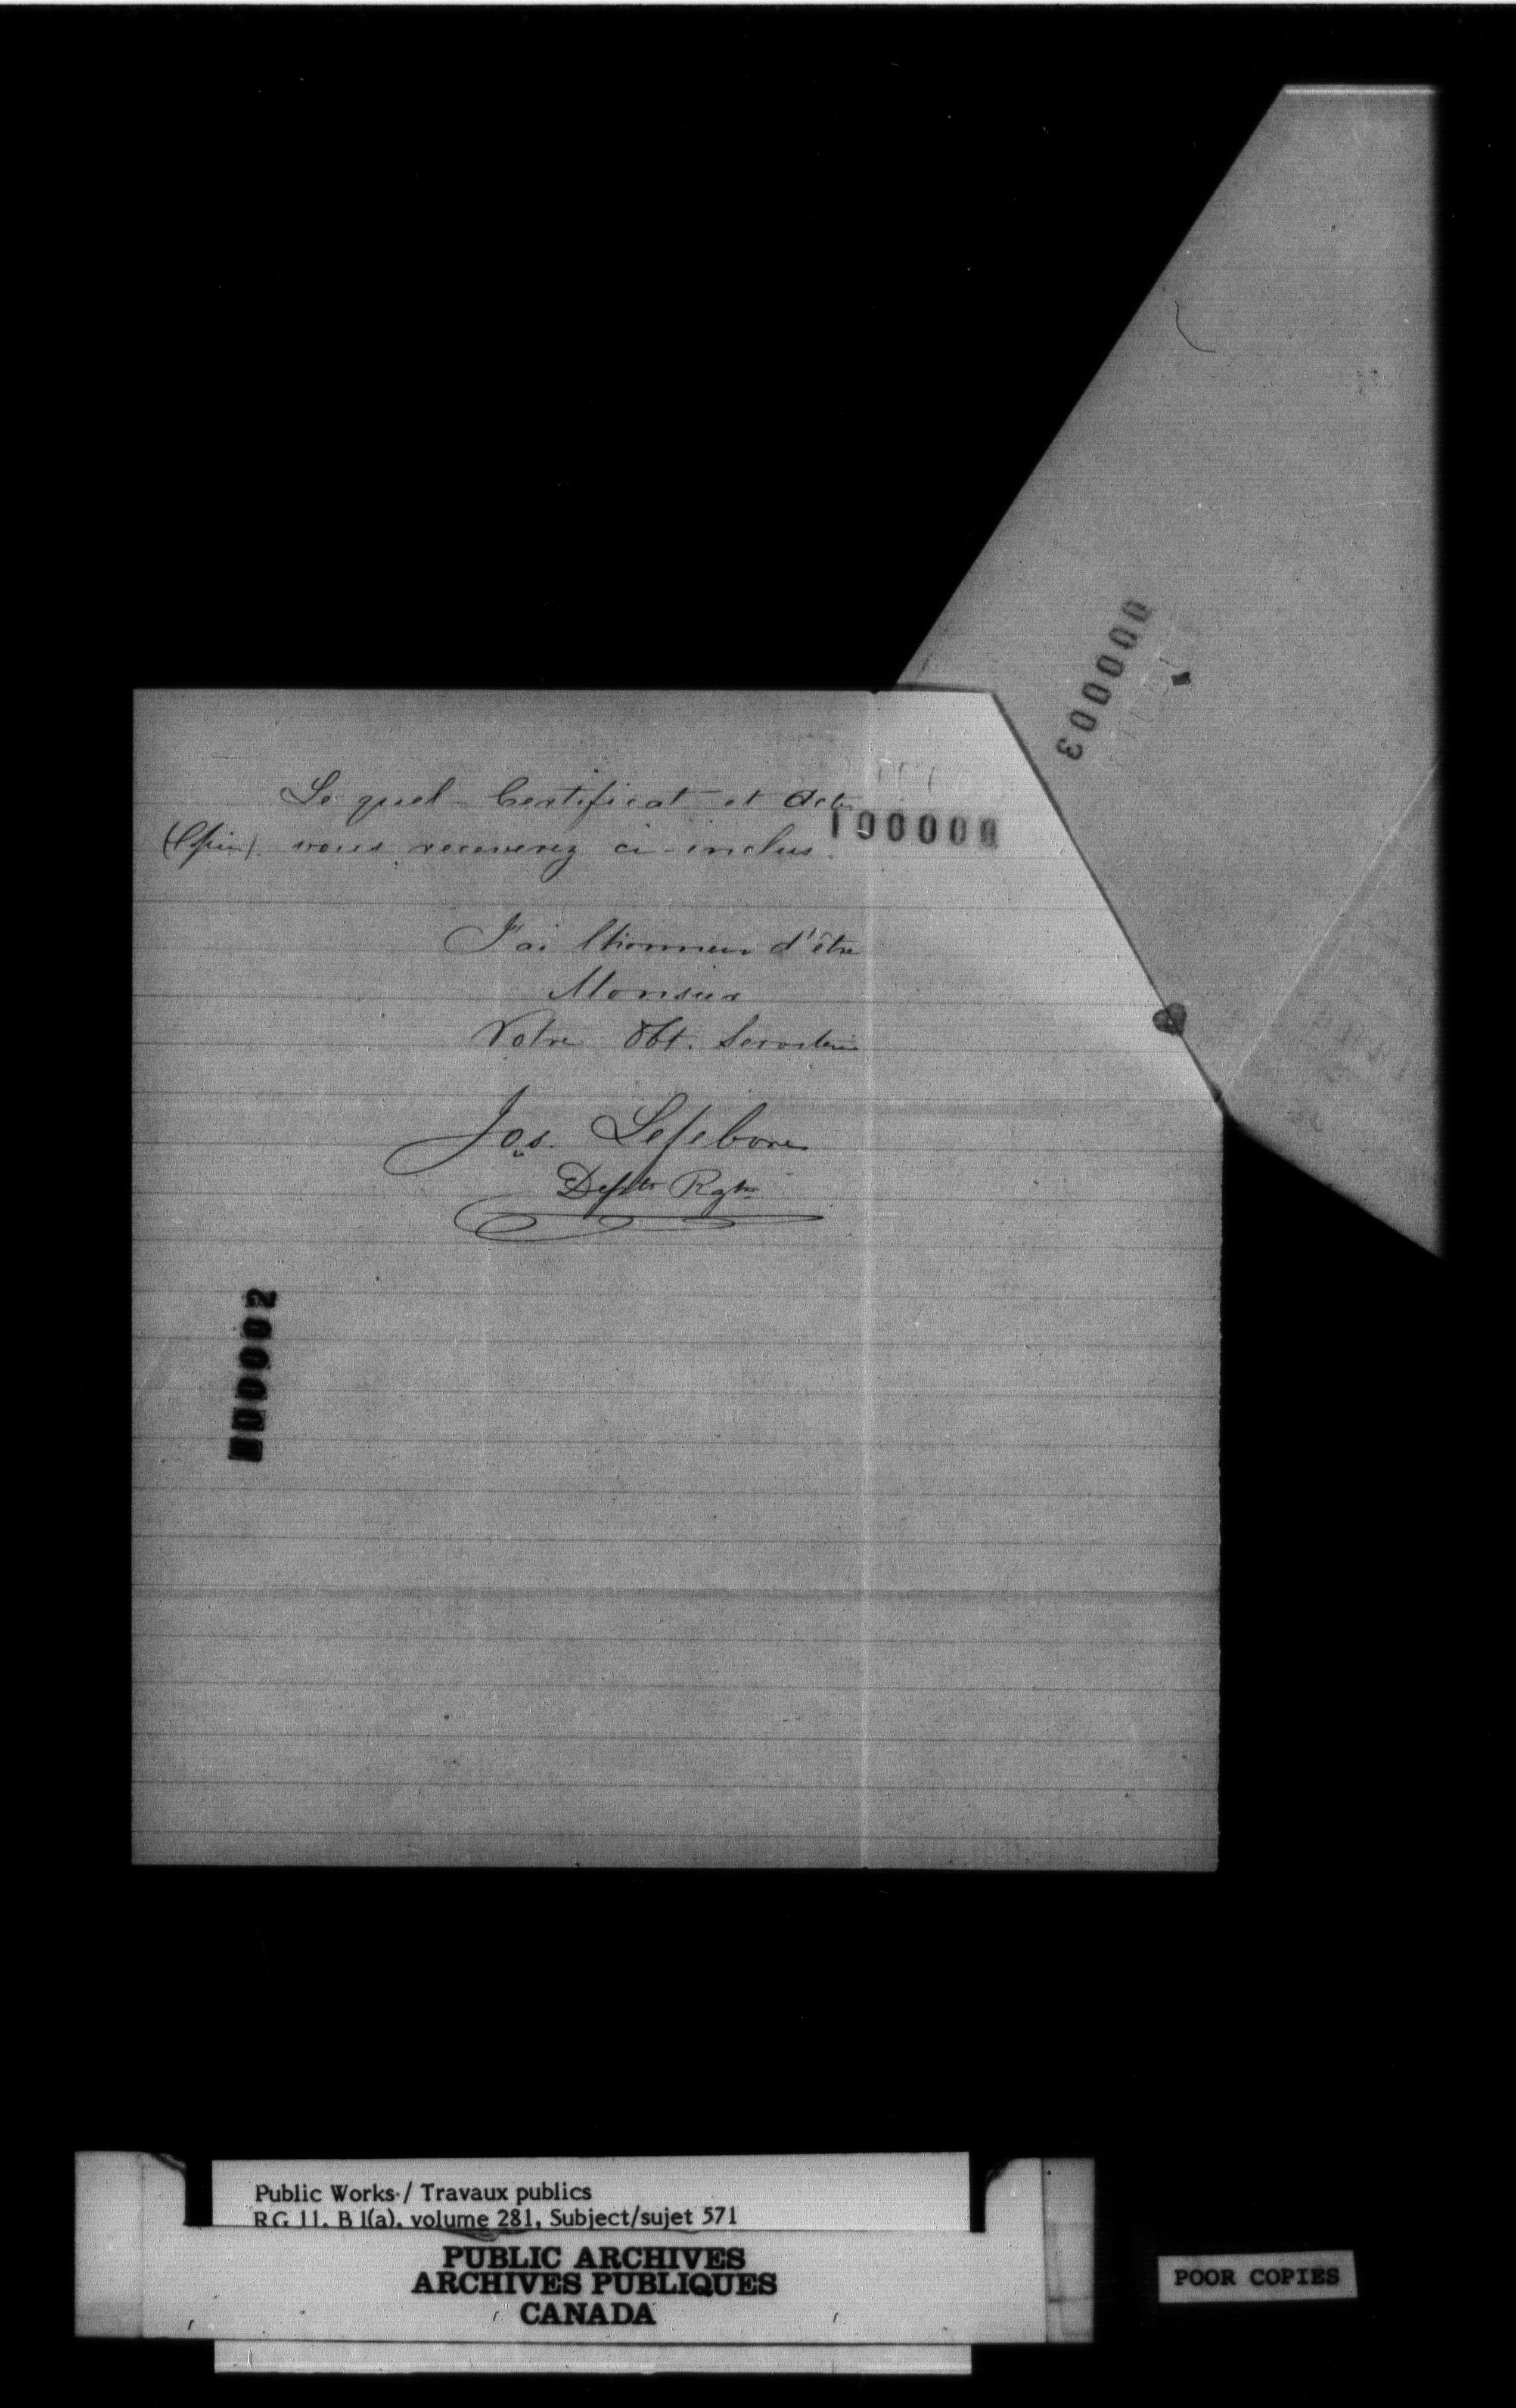 Le quel Certificat et acte
(Copie) vous receverez ci-inclus.
J'ai l'honneur d'être
Monsieur
Votre Obt. Serviteur
Jos. Lefebvre
Depte Rgtr
000001
000002
000003
Public Works / Travaux publics
RG 11, B1(a), volume 281, Subject/sujet 571
PUBLIC ARCHIVES
ARCHIVES PUBLIQUES
CANADA
POOR COPIES